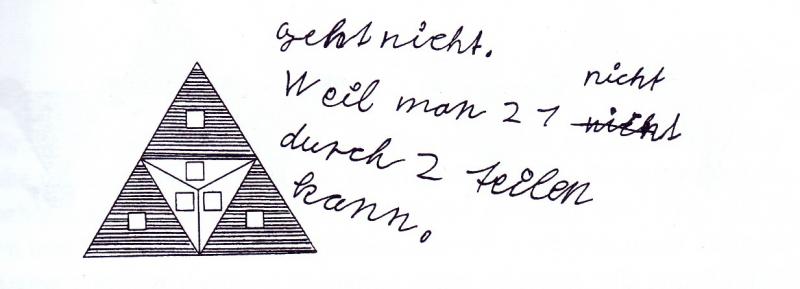 geht nicht.
nicht
Weil man 21 nicht
durch 2 teilen
kann.